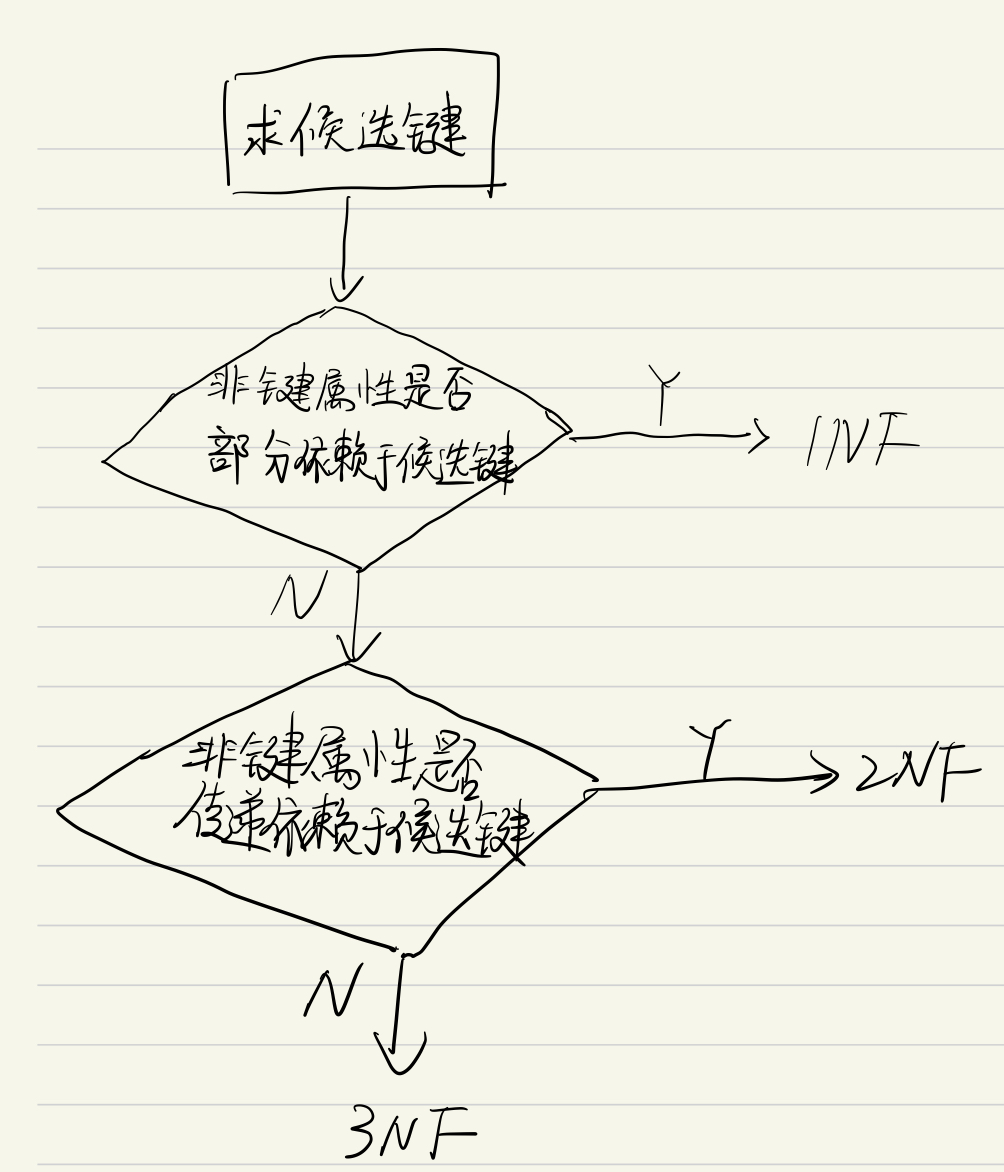 求候选键
非键属性是否
部分依赖于候选键
Y
1NF
N
非键属性是否
传递依赖于候选键
Y
2NF
N
3NF